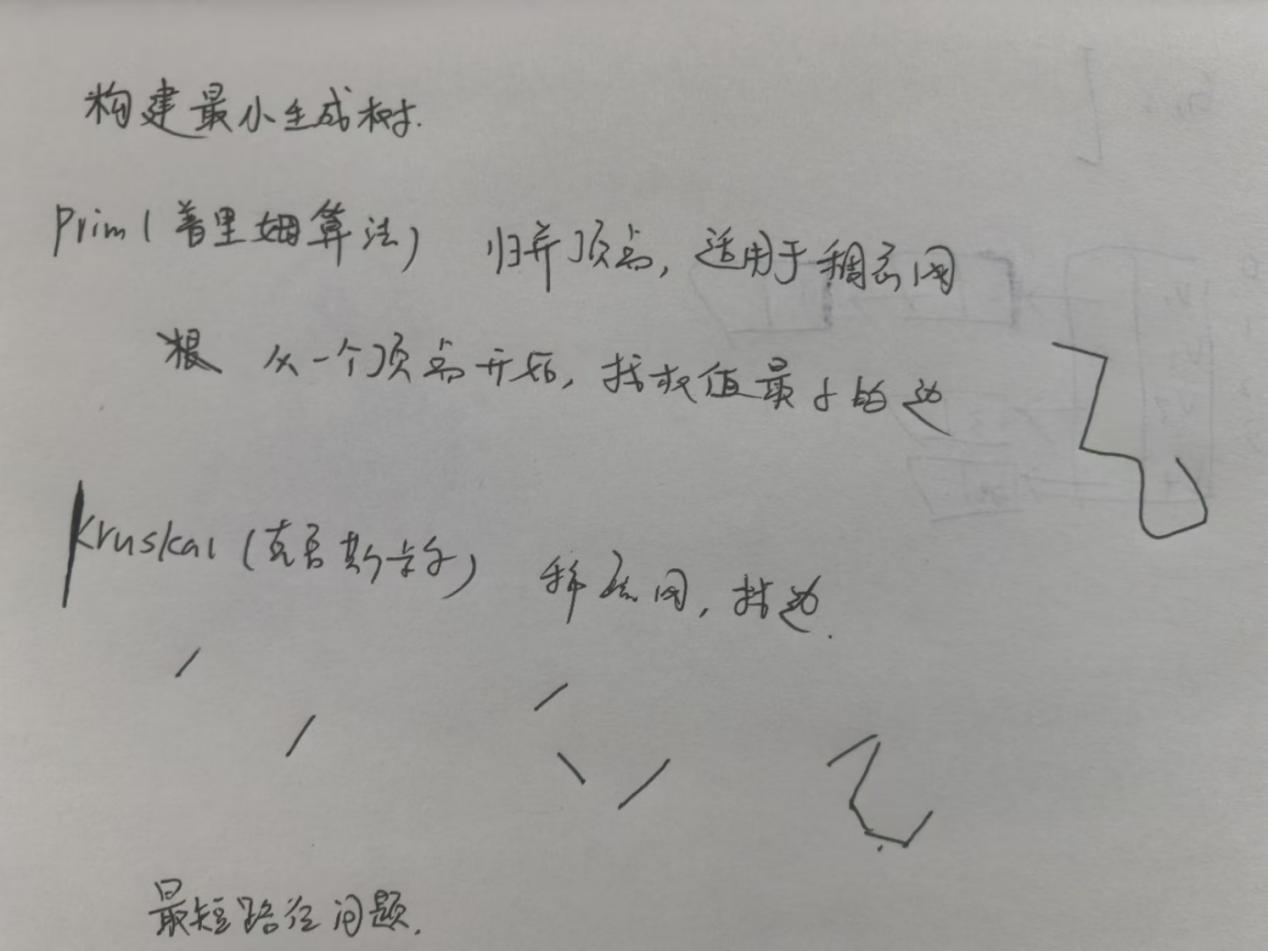 构建最小生成树.
Prim(普里姆算法) 归并顶点, 适用于稠密网
从一个顶点开始, 找权值最小的边
Kruskal(克鲁斯卡尔) 稀疏网, 找边.
最短路径问题.